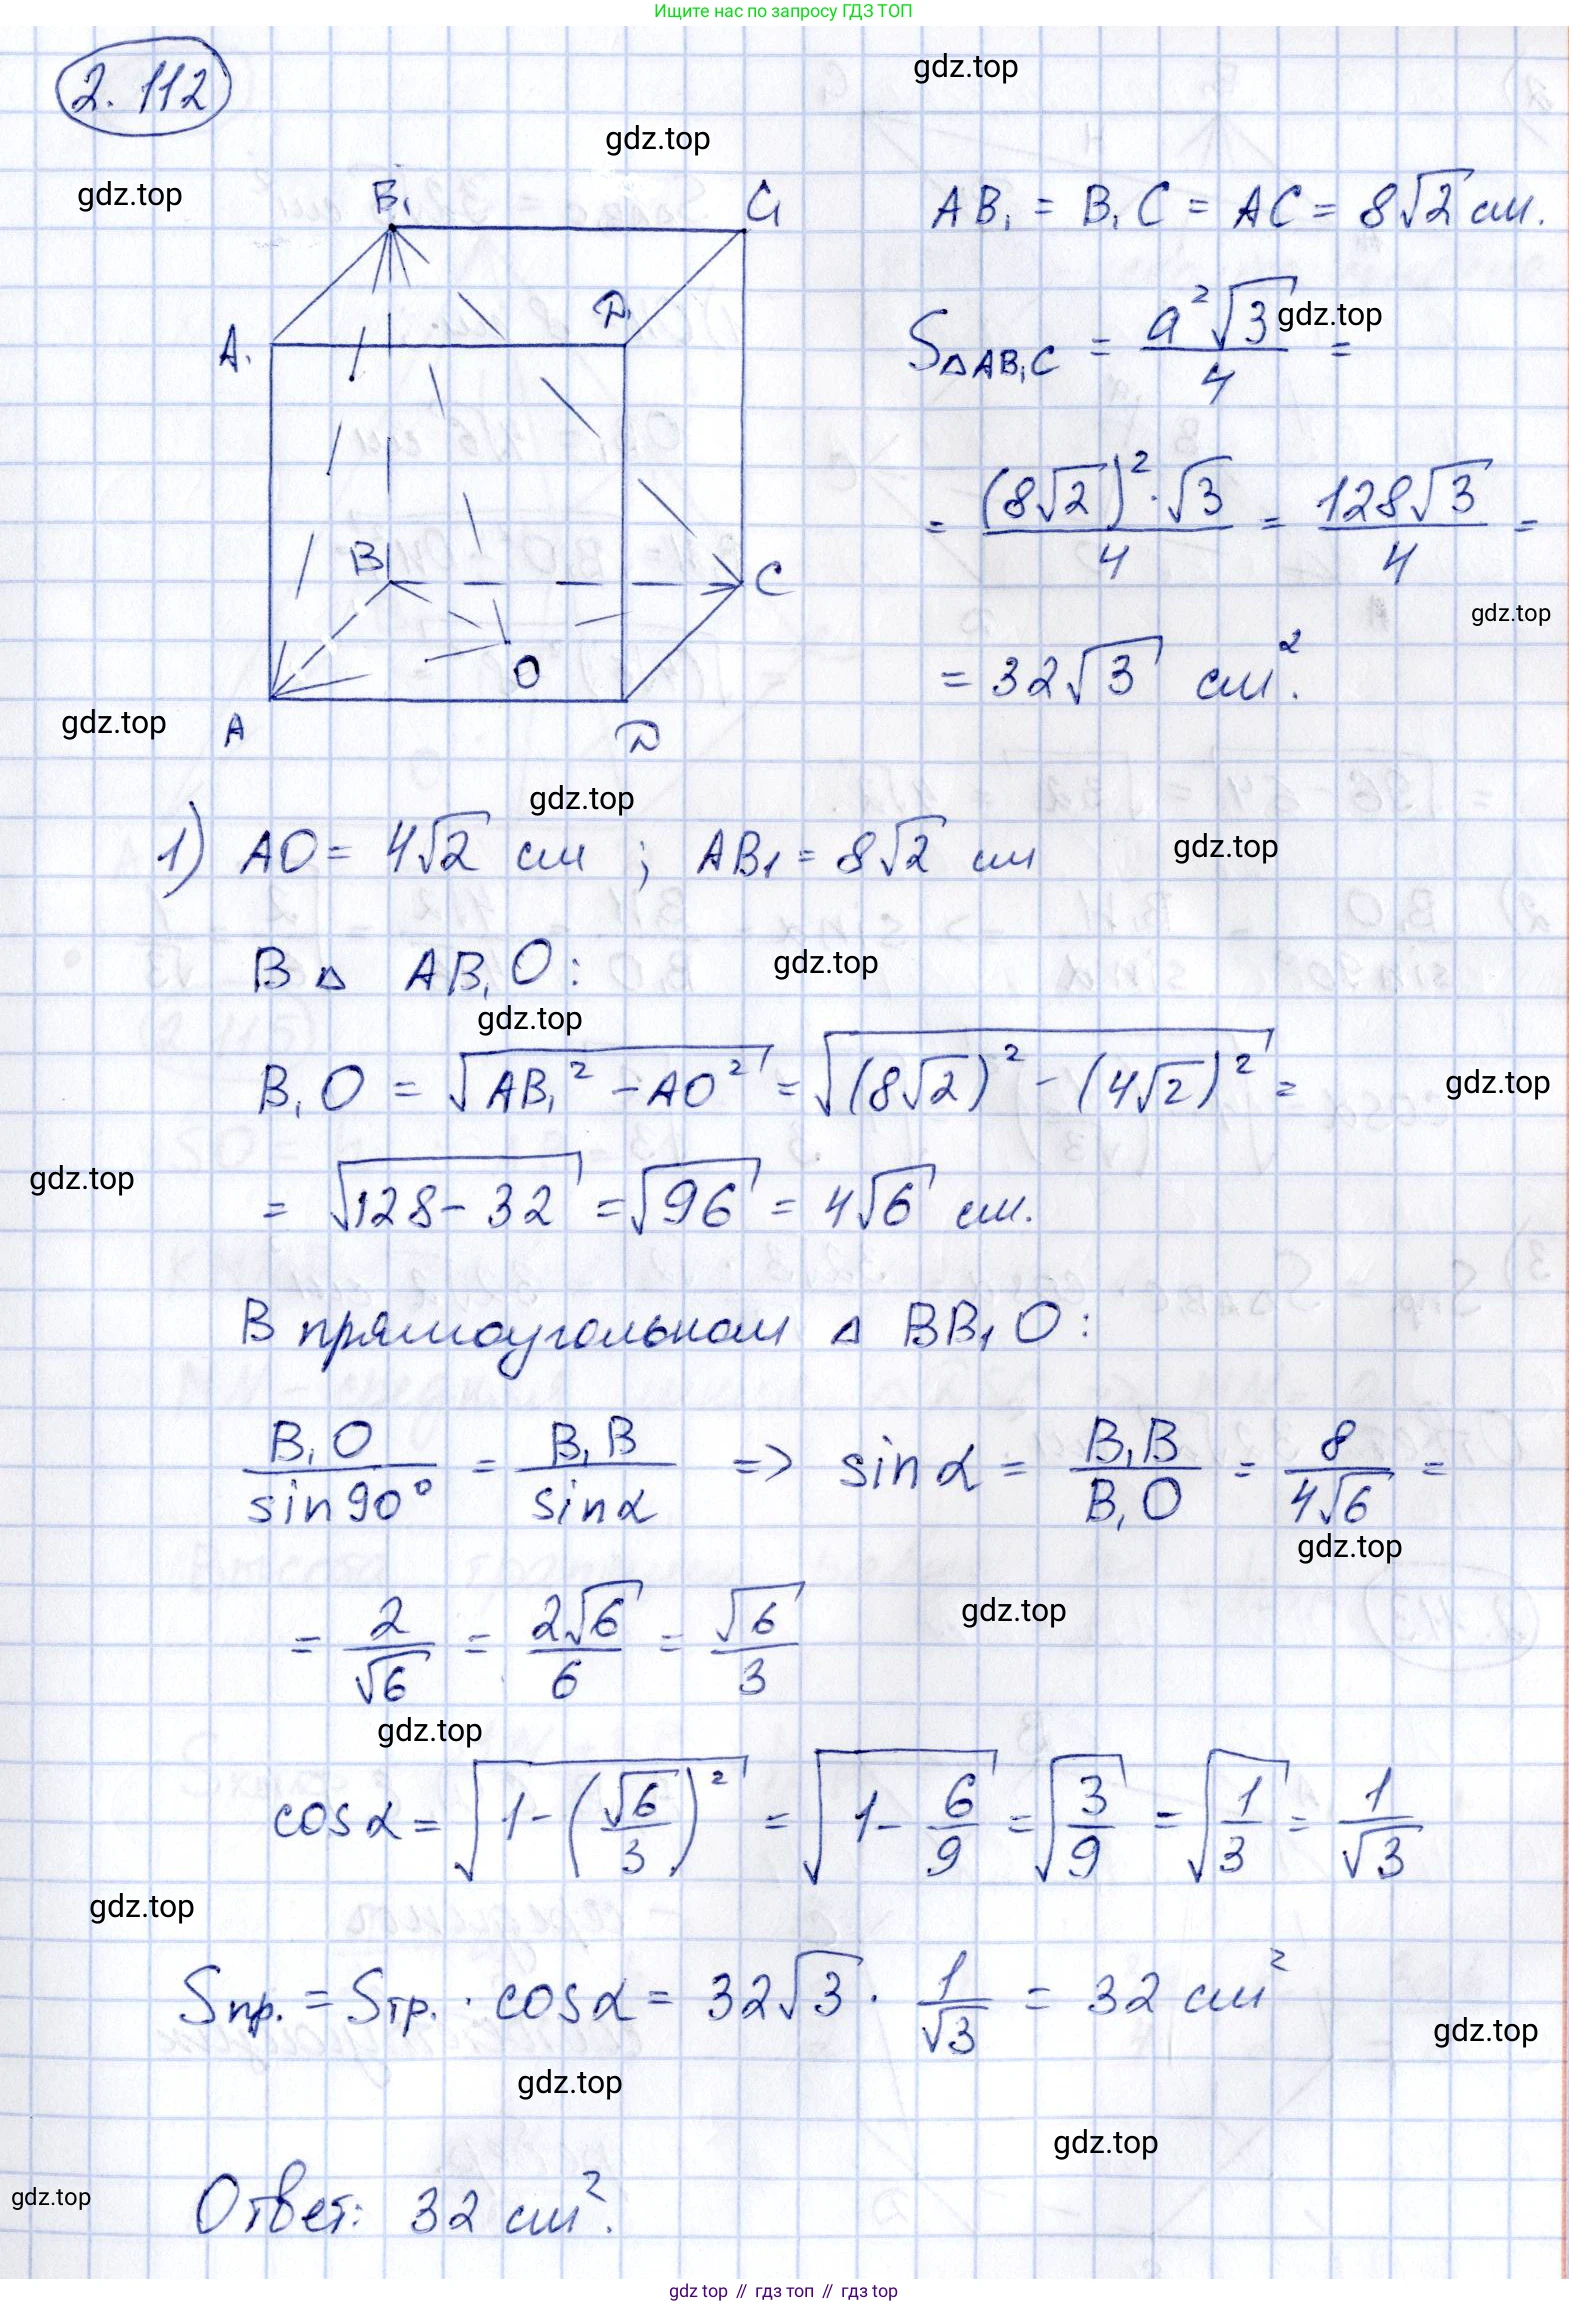 Ищите нас по запросу ГДЗ ТОП
2.112
gdz.top
gdz.top
gdz.top
B₁ C₁
AB₁ = B₁C = AC = 8√2 см.
A₁ D₁
S△AB₁C = a²√3/4 =
gdz.top
= (8√2)²·√3/4 = 128√3/4 =
B C
gdz.top
= 32√3 см².
O
gdz.top
A D
gdz.top
1) AO = 4√2 см ; AB1 = 8√2 см
gdz.top
В △ AB₁O:
gdz.top
gdz.top
B₁O = √(AB₁² - AO²) = √((8√2)² - (4√2)²) =
gdz.top
gdz.top
= √(128 - 32) = √96 = 4√6 см.
В прямоугольном △ BB₁O:
B₁O/sin90° = B₁B/sinα => sinα = B₁B/B₁O = 8/4√6 =
gdz.top
= 2/√6 = 2√6/6 = √6/3
gdz.top
gdz.top
cosα = √(1-(√6/3)²) = √(1-6/9) = √(3/9) = √(1/3) = 1/√3
gdz.top
Sпр. = Sтр. · cosα = 32√3 · 1/√3 = 32 см²
gdz.top
gdz.top
gdz.top
Ответ: 32 см².
gdz.top
gdz top // гдз топ // гдз top